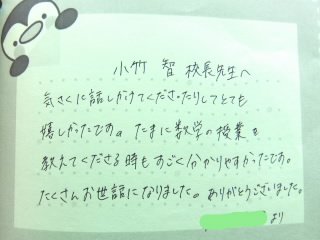 小竹 智 校長先生へ
気さくに話しかけてくださったりしてとても
嬉しかったです。たまに数学の授業を
教えてくださる時もすごく分かりやすかったです。
たくさんお世話になりました。ありがとうございました。
より